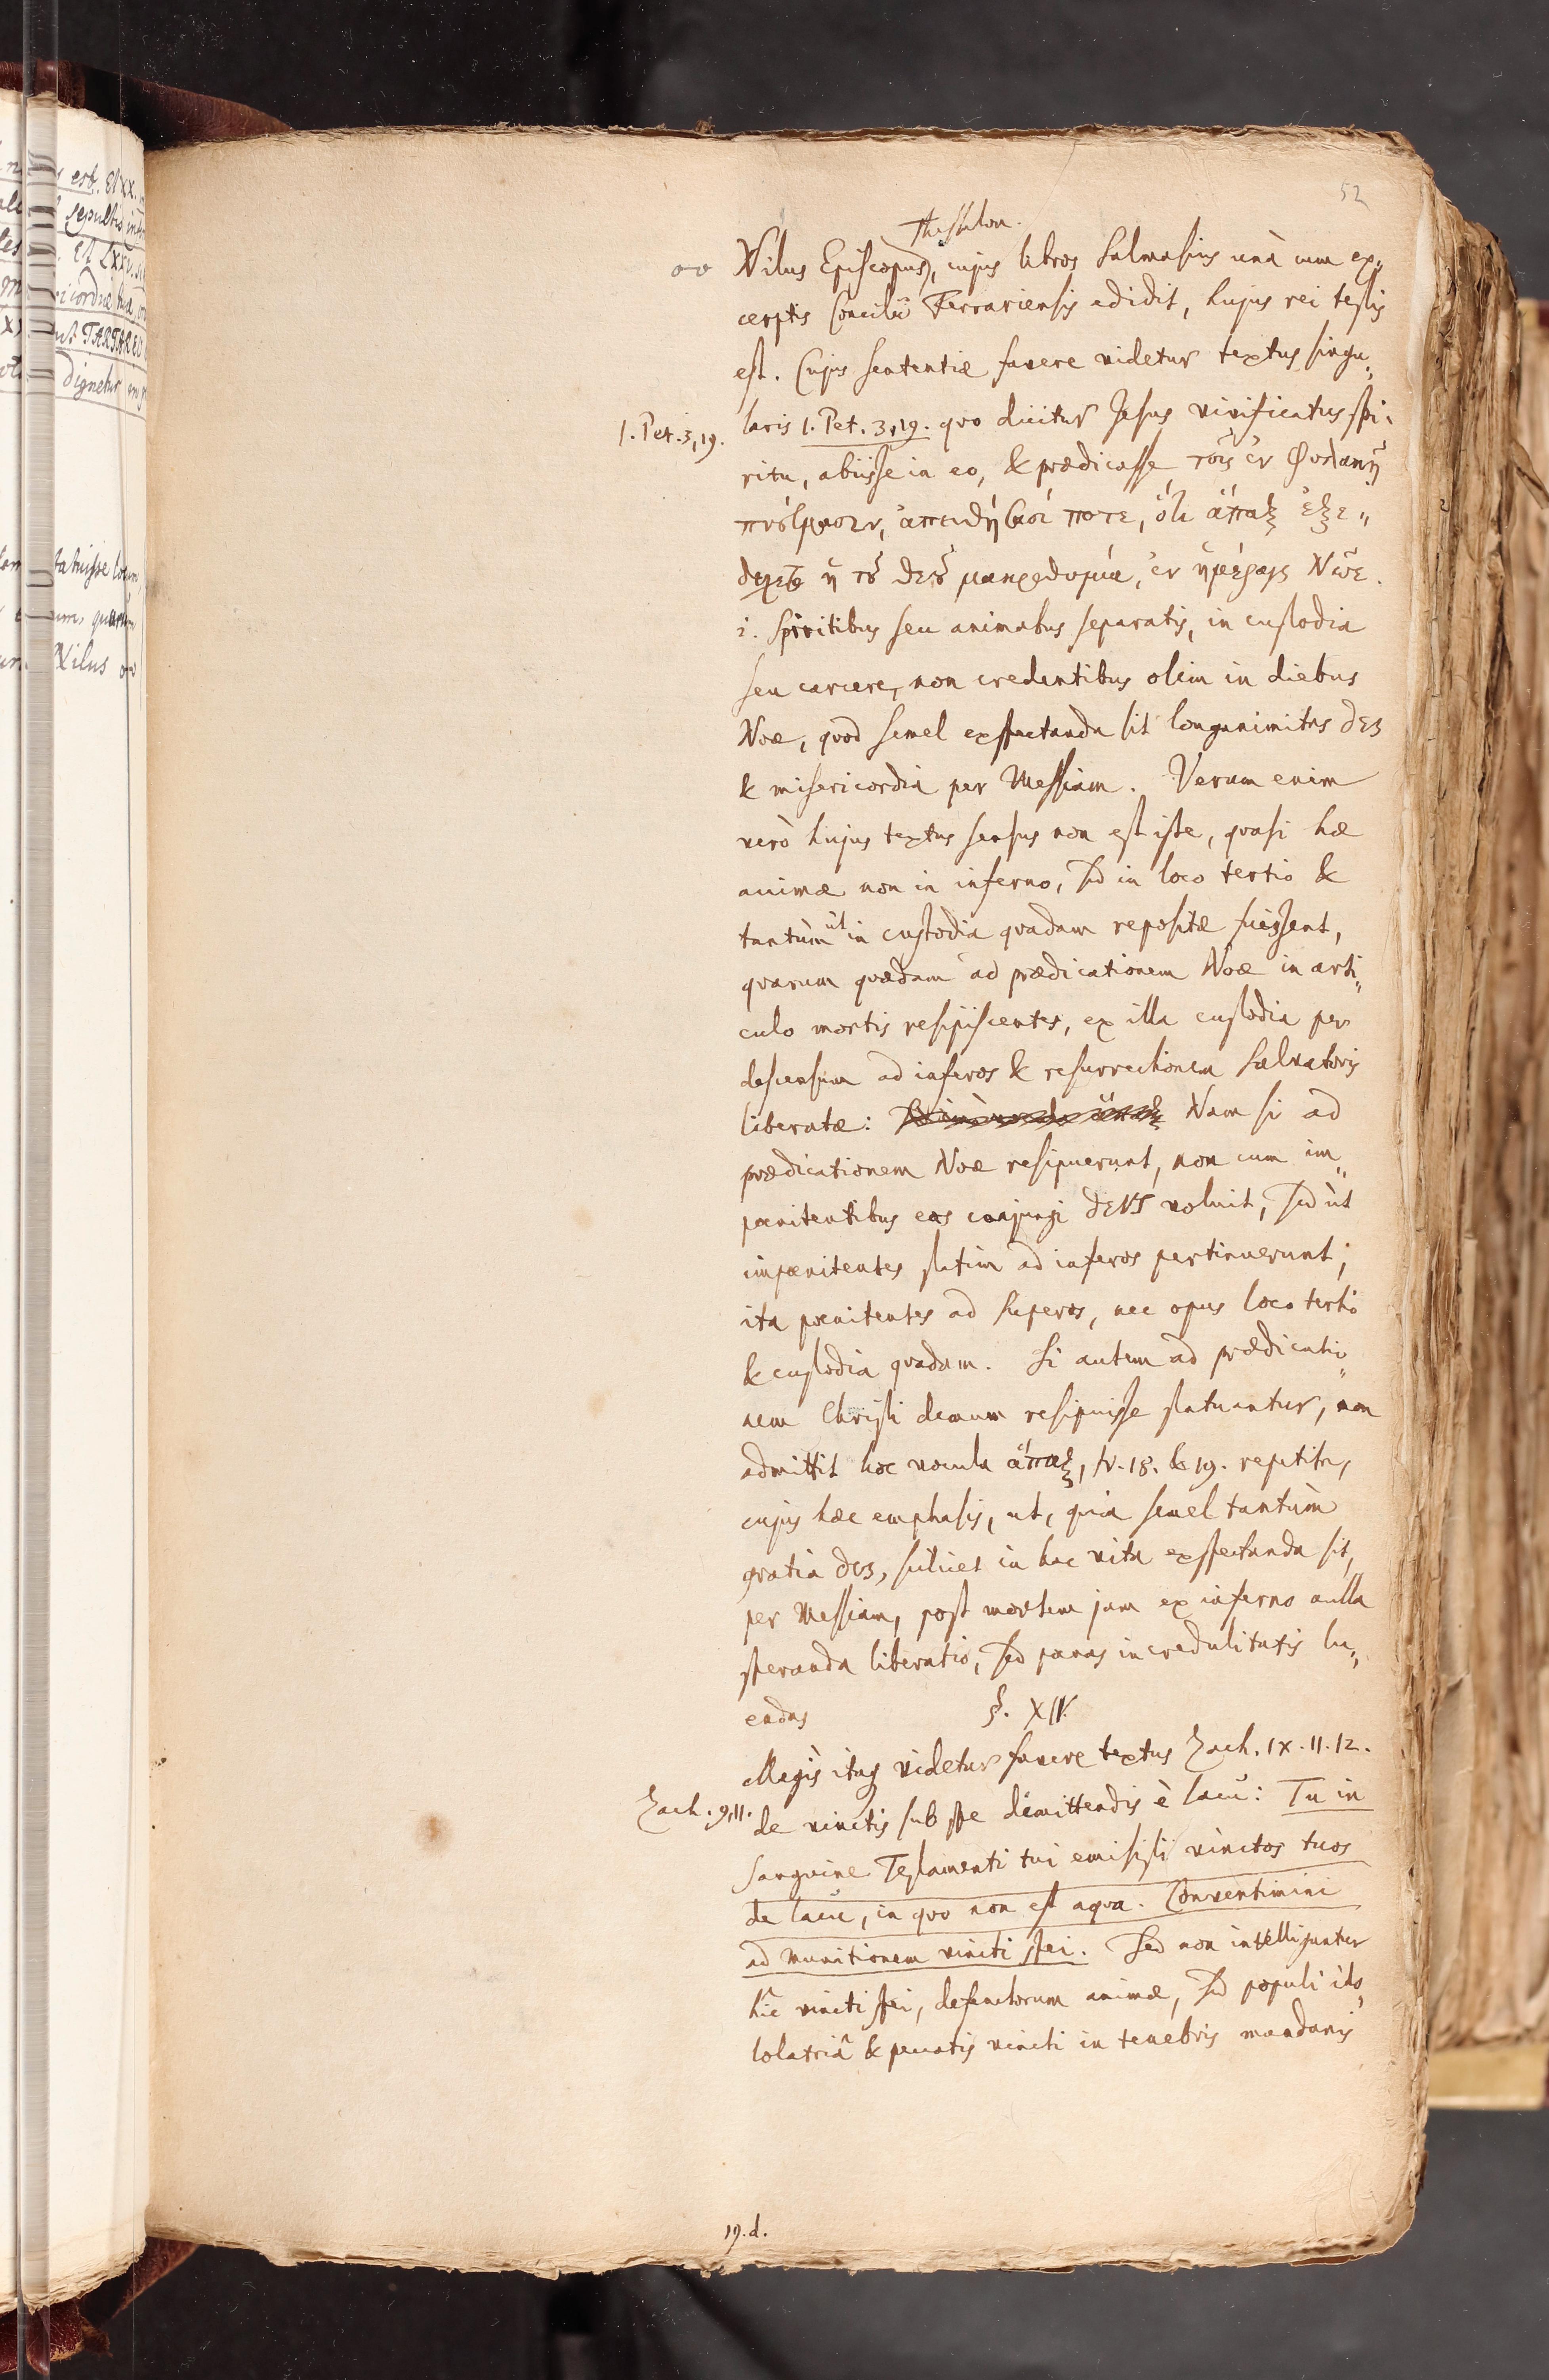 52
Thessalon.
oo Nilus Episcopus, cujus libros Salmasius unà cum ex„
cerptis Concilii Ferrariensis edidit, hujus rei testis
est. Cujus sententiæ favere videtur textus singu„
1. Pet. 3, 19. laris 1. Pet. 3, 19. quo dicitur Jesus vivificatus spi„
ritu, abiisse in eo, & prædicasse τοῖς ἐν φυλακῇ
πνεύμασιν, ἀπειθήσασί ποτε, ὅτε ἅπαξ ἐξε„
δέχετο ἡ τοῦ θεοῦ μακροθυμία, ἐν ἡμέραις Νῶε.
i. Spiritibus seu animabus separatis, in custodia
seu carcere, non credentibus olim in diebus
Noæ, quod semel exspectanda sit longanimitas DEI
& misericordia per Messiam. Verum enim
verò hujus textus sensus non est iste, quasi hæ
animæ non in inferno, sed in loco tertio &
tantùm ut in custodia quadam repositæ fuissent,
quarum quædam ad prædicationem Noæ in arti„
culo mortis resipiscentes, ex illa custodia per
descensum ad inferos & resurrectionem Salvatoris
liberatæ: Nam si ad
prædicationem Noæ resipuerunt, non cum im„
pœnitentibus eas conjungi DEUS voluit, sed ùt
impœnitentes statim ad inferos pertinuerunt;
ita pœnitentes ad superos, nec opus loco tertio
& custodia quadam. Si autem ad prædicatio„
nem Christi demum resipuisse statuantur, non
admittit hoc vocula ἅπαξ, v. 18. & 19. repetita,
cujus hæc emphasis, ut, quia semel tantùm
gratia DEI, scilicet in hac vita exspectanda sit,
per Messiam, post mortem jam ex inferno nulla
speranda liberatio, sed pœnas incredulitatis lu„
endas
§. XIV.
Magis itaq videtur favere textus Zach. IX. 11. 12.
Zach. 9, 11. de vinctis sub spe dimittendis è lacu: Tu in
sanguine Testamenti tui emisisti vinctos tuos
de lacu, in quo non est aqva. Convertimini
ad munitionem vincti spei. Sed non intelliguntur
hîc vincti spei, defunctorum animæ, sed populi ido„
lolatriâ & peccatis vincti in tenebris mundanis
19. d.